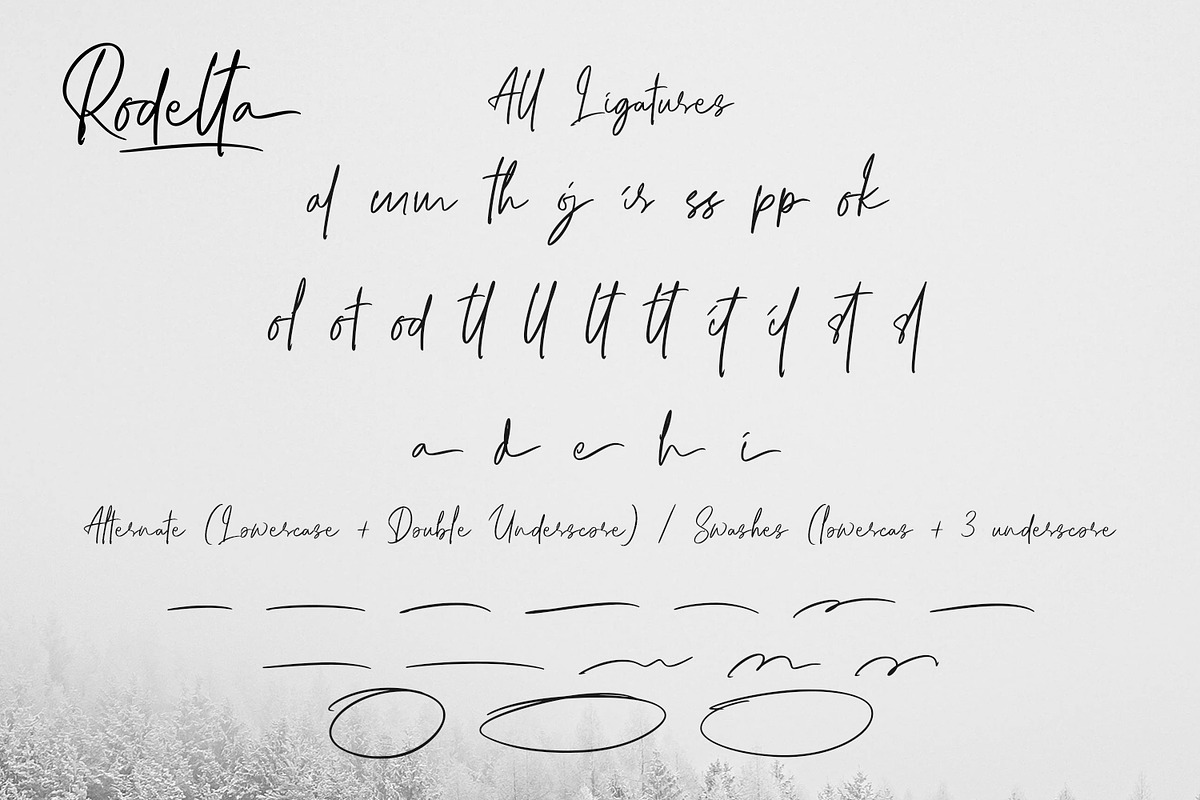 Rodelta
All Ligatures
af mm th oj is ss pp ok
ol ot od tl ll lt tt it il st sl
a d e h i
Alternate (Lowercase + Double Underscore) / Swashes (lowercas + 3 underscore